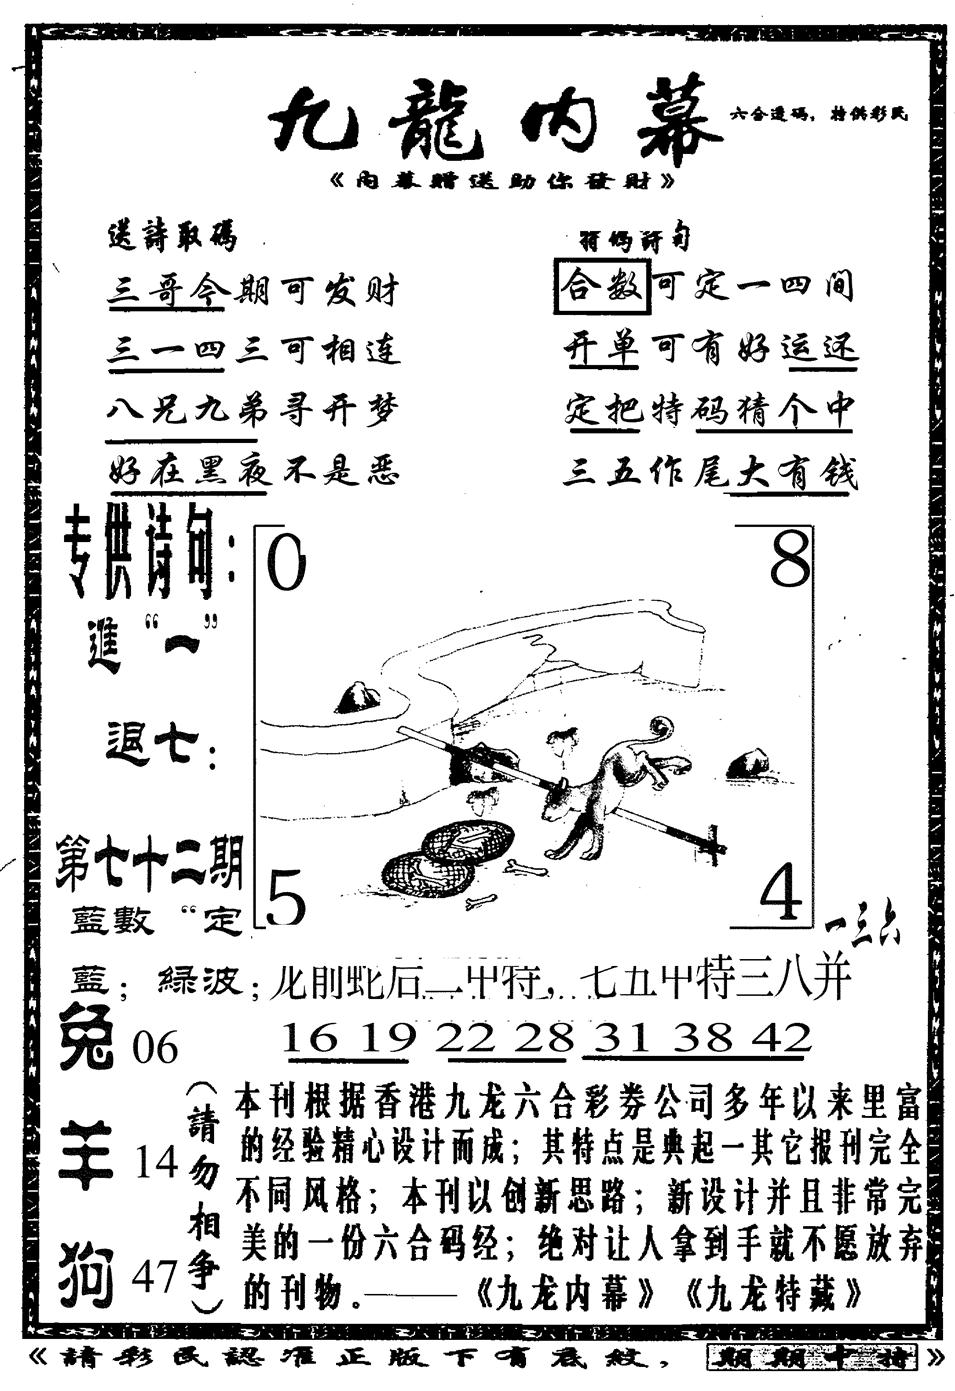 九龍內幕
六合透码，特供彩民
《內幕贈送助你發財》
送詩取碼
三哥今期可发财
三一四三可相连
八兄九弟寻开梦
好在黑夜不是恶
符码詩句
合数可定一四间
开单可有好运还
定把特码猜个中
三五作尾大有钱
专供诗句：
進“一”
退七：
第七十二期
藍數“定
藍；綠波；
0
8
5
4
一三六
龙前蛇后二中特，七五中特三八并
16 19 22 28 31 38 42
兔 06
羊 14
狗 47
（請勿相争）
本刊根据香港九龙六合彩券公司多年以来里富
的经验精心设计而成；其特点是典起一其它报刊完全
不同风格；本刊以创新思路；新设计并且非常完
美的一份六合码经；绝对让人拿到手就不愿放弃
的刊物。——《九龙内幕》《九龙特藏》
《請彩民認准正版下有底紋，期期中特》